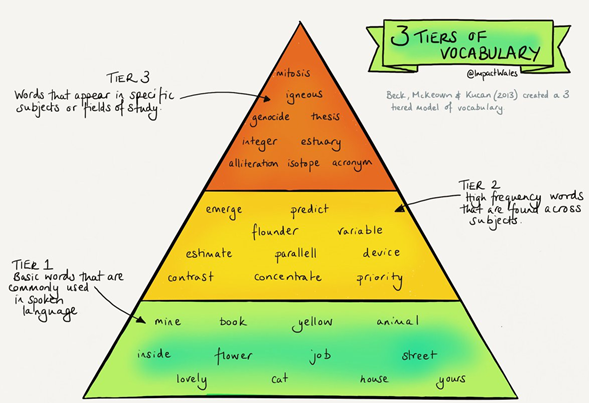 3 TIERS OF
VOCABULARY
@ImpactWales
Beck, McKeown & Kucan (2013) created a 3
tiered model of vocabulary
TIER 3
Words that appear in specific
subjects or fields of study.
mitosis
igneous
genocide thesis
integer estuary
alliteration isotope acronym
TIER 2
High frequency words
that are found across
subjects.
emerge predict
flounder variable
estimate parallell device
contrast concentrate priority
TIER 1
Basic words that are
commonly used
in spoken
language
mine book yellow animal
inside flower job street
lovely cat house yours